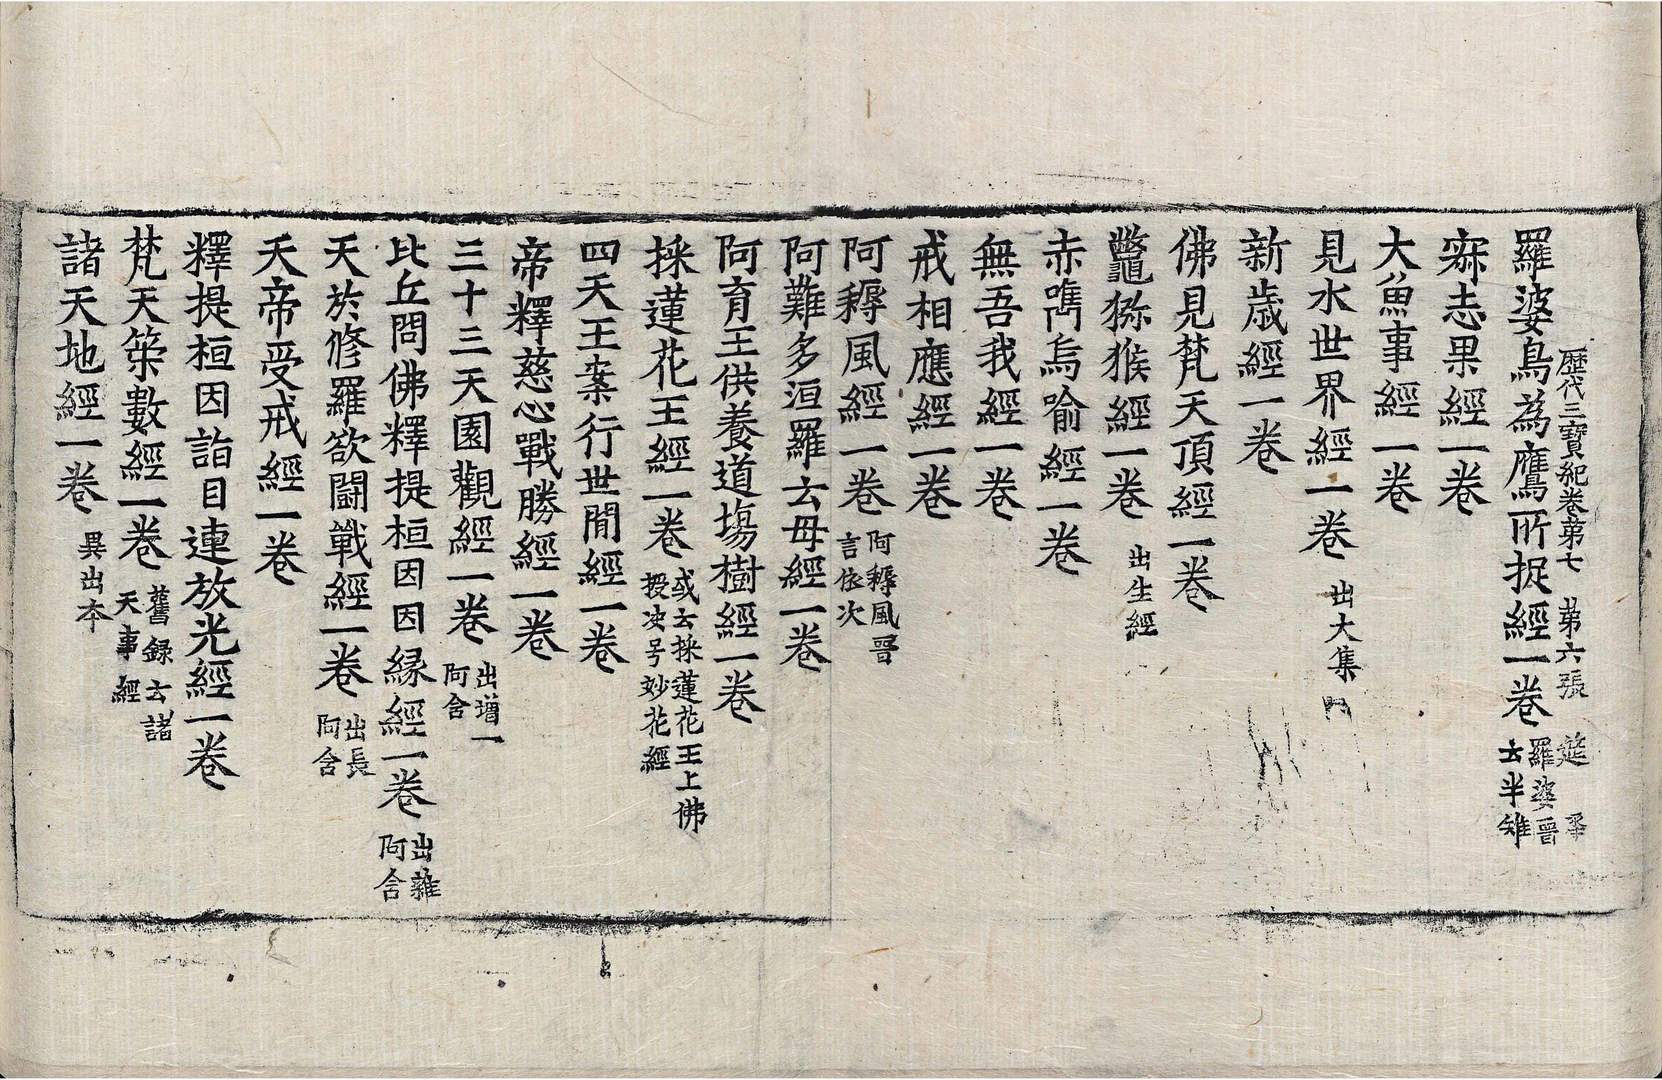 歷代三寶紀卷第七 第六張 莚
羅婆鳥為鷹所捉經一卷 羅婆晉云半雉
寐志果經一卷
大魚事經一卷
見水世界經一卷 出大集
新歲經一卷
佛見梵天頂經一卷
鼈獼猴經一卷 出生經
赤觜烏喻經一卷
無吾我經一卷
戒相應經一卷
阿耨風經一卷 阿耨風晉言依次
阿難多洹羅云母經一卷
阿育王供養道場樹經一卷
採蓮花王經一卷 或云採蓮花王上佛授决号妙花經
四天王案行世閒經一卷
帝釋慈心戰勝經一卷
三十三天園觀經一卷 出增一阿含
比丘問佛釋提桓因因緣經一卷 出雜阿含
天於修羅欲鬪戰經一卷 出長阿含
天帝受戒經一卷
釋提桓因詣目連放光經一卷
梵天䇿數經一卷 舊録云諸天事經
諸天地經一卷 異出本